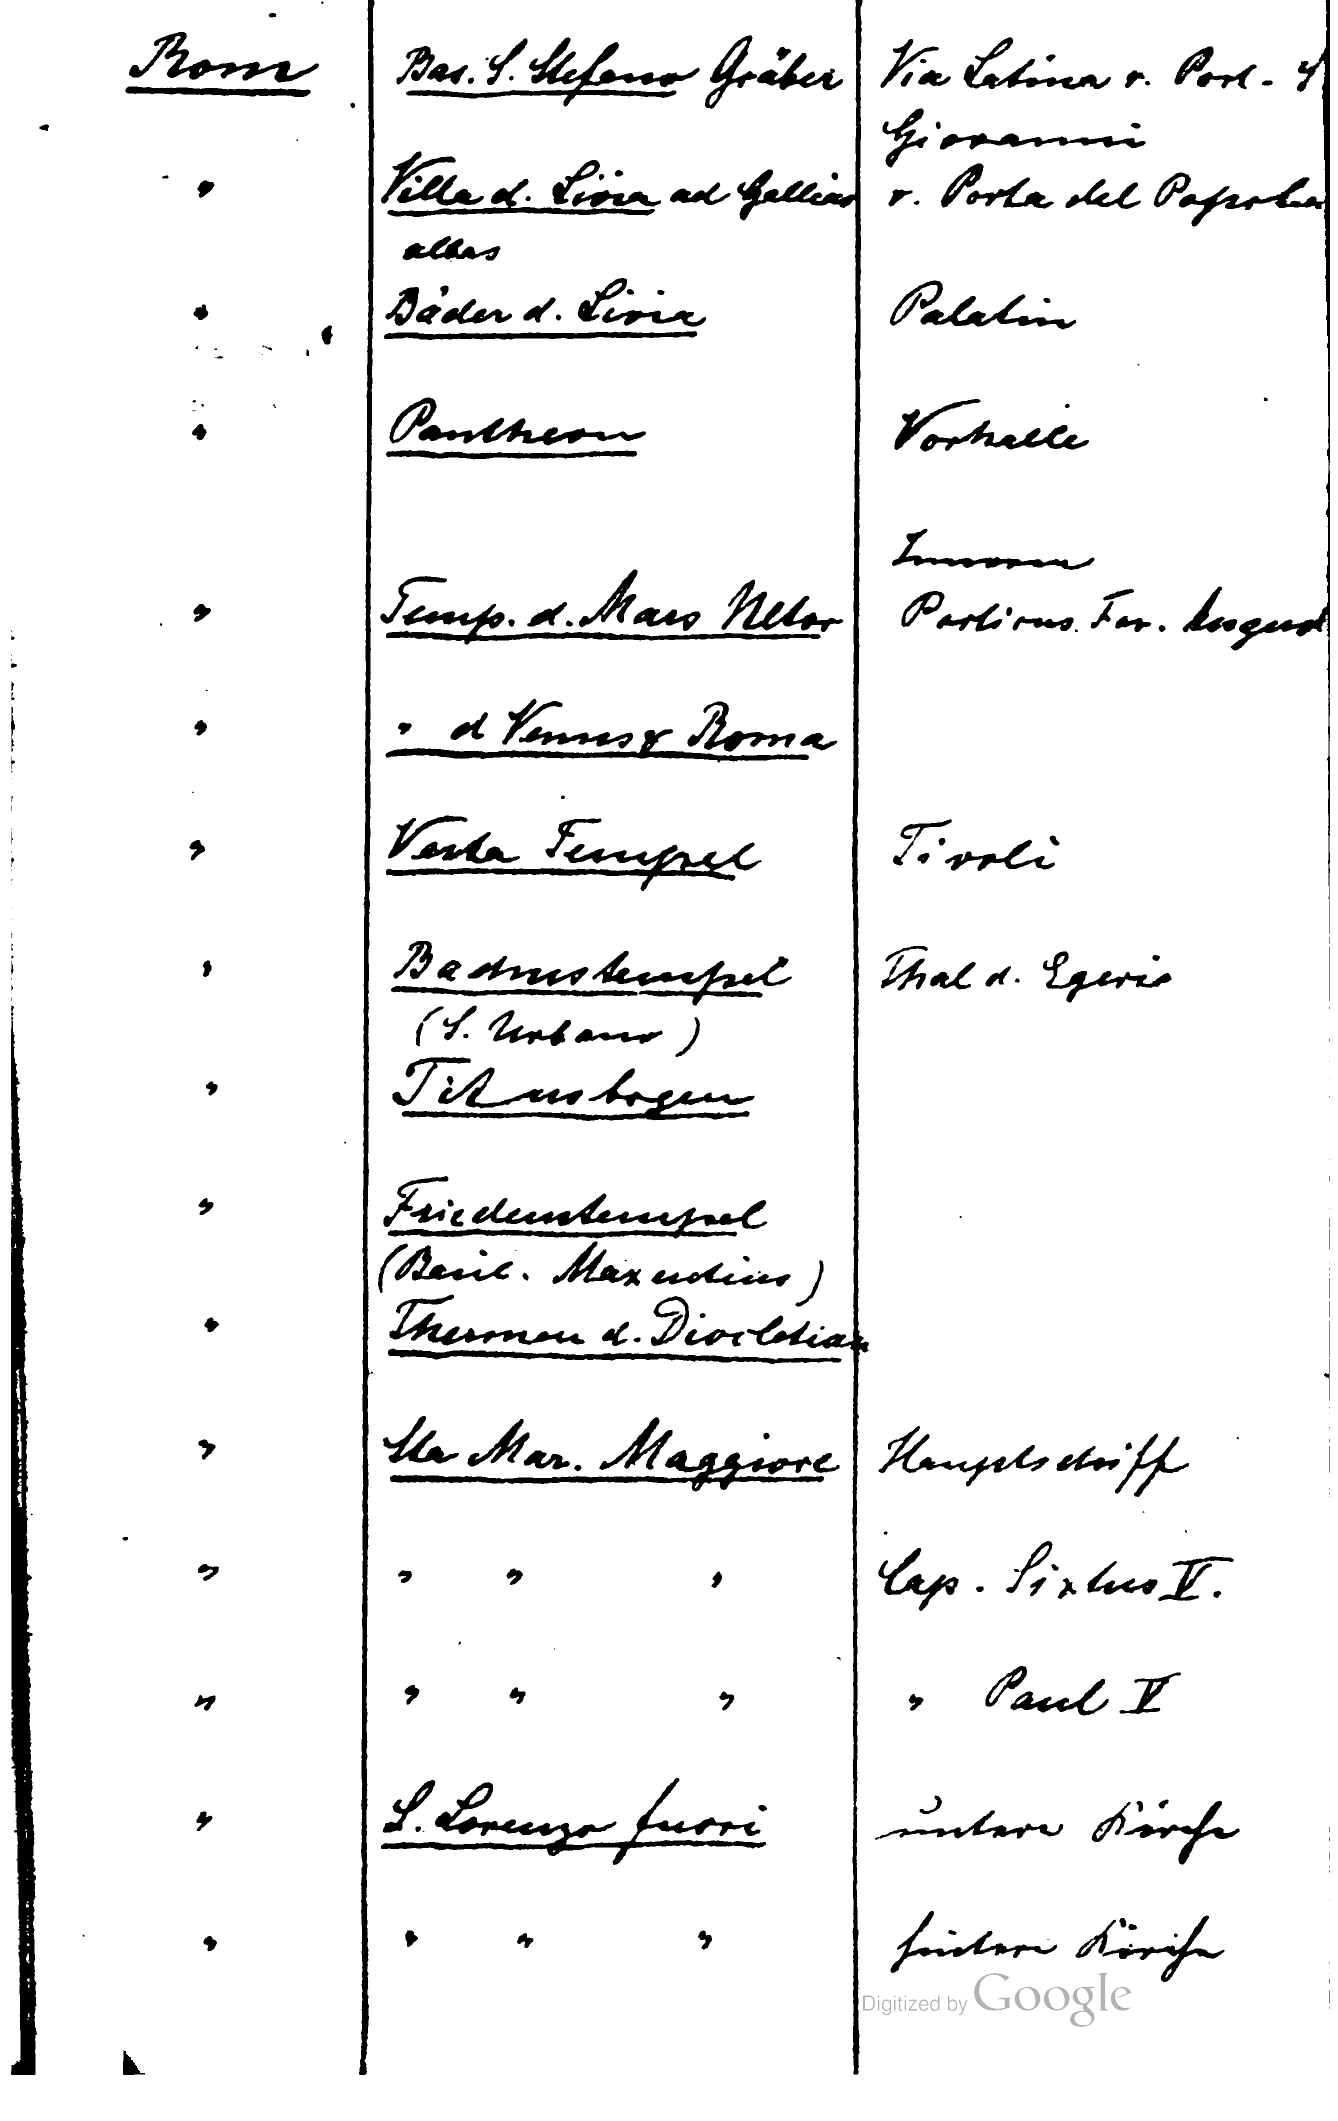 Rom Bas. S. Stefano Gräber Via Latina v. Port. S
Giovanni
" Villa d. Livia ad Gallinas v. Porta del Popolo
albas
" Bäder d. Livia Palatin
" Pantheon Vorhalle
Inneres
" Temp. d. Mars Ultor Porticus For. August
" " d Venus & Roma
" Vesta Tempel Tivoli
" Bachustempel Thal d. Egeria
(S. Urbano)
" Titusbogen
" Friedenstempel
(Basil. Maxentius)
" Thermen d. Diocletian
" Sta Mar. Maggiore Hauptschiff
" " " " Cap. Sixtus V.
" " " " " Paul V
" S. Lorenzo fuori untere Kirche
" " " " hintere Kirche
Digitized by Google